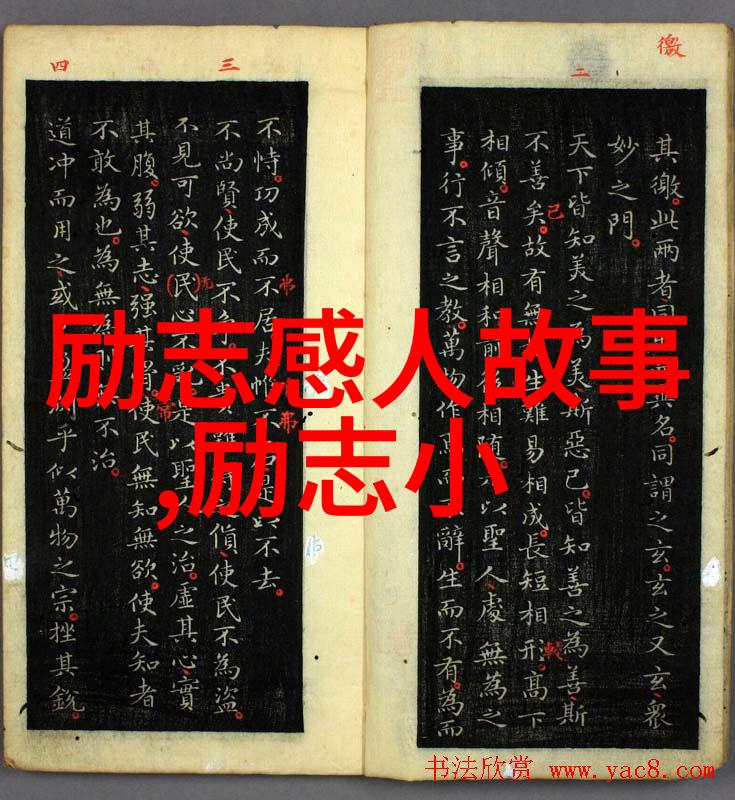 徼
二
其徼。此兩者同異名。同謂之玄。玄之又玄、衆
妙之門。
天下皆知美之為美斯惡已。皆知善之為善斯
不善矣。故有無生難易相成。長短相形。高下
相傾。音聲相和前後相隨。以聖人處無為之
事。行不言之教。萬物作焉而辭。生而不有。為而
三
四
不恃。功成而不居夫惟不是以不去。
不尚賢、使民不不難貨、使民不為盜。
不見可欲、使民心不亂是以聖人之治。虛其心、實
其腹。弱其志、强其骨、使民無知無欲。使夫知者
不敢為也。為無為不治。
道冲而用之、或乎似萬物之宗。挫其銳。
弗
弗
无
已
励志感人故事
,励志小
书法欣赏 www.yac8.com